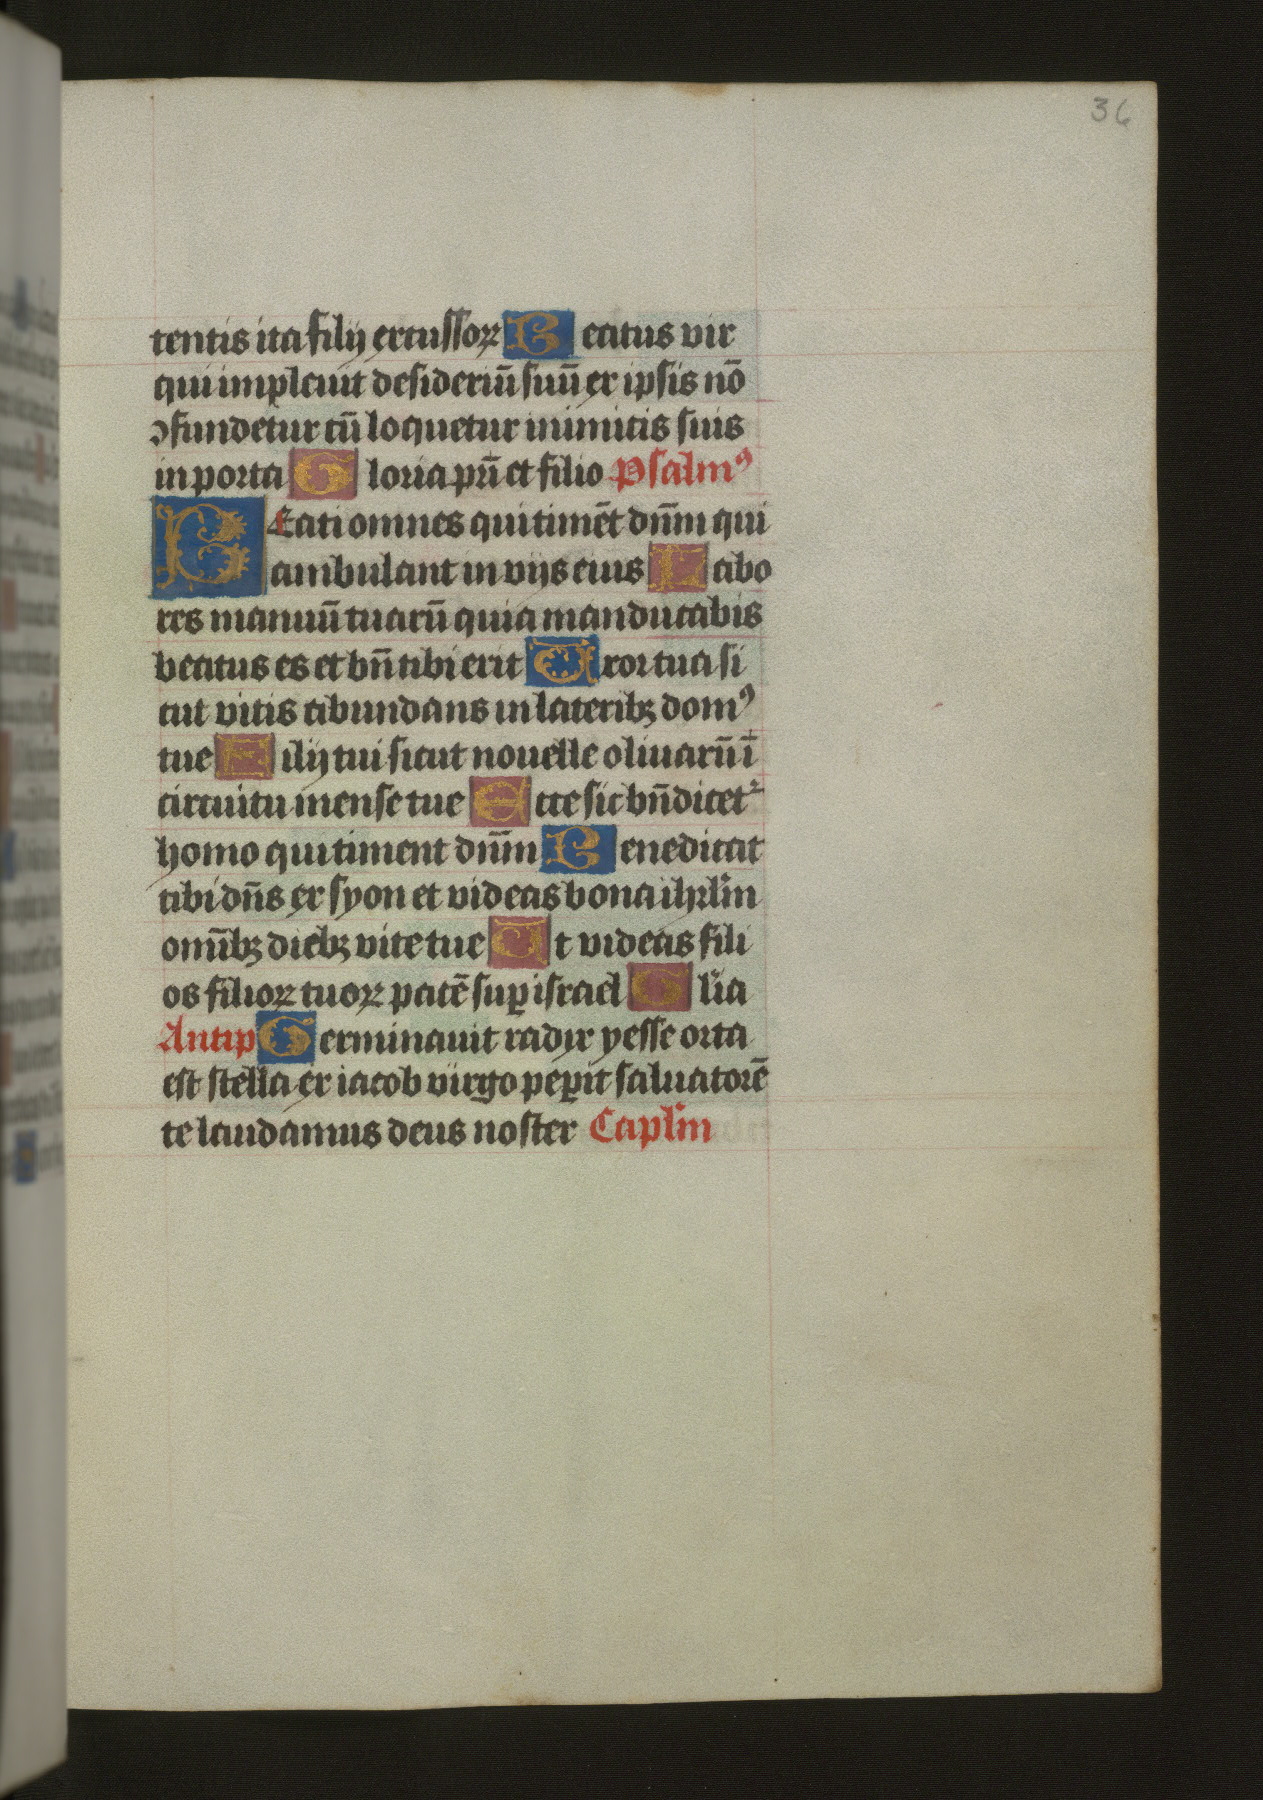 36
tentis ita filij excussoꝝ Beatus vir
qui impleuit desideriū suū ex ipsis nō
ꝯfundetur cū loquetur inimicis suis
in porta Gloria pr̄i et filio Psalmꝰ
BEati omnes qui timēt dn̄m qui
ambulant in vijs eius Labo
res manuū tuarū quia manducabis
beatus es et bn̄ tibi erit Uxor tua si
cut vitis abundans in lateribꝫ domꝰ
tue Filij tui sicut nouelle oliuarū ī
circuitu mense tue Ecce sic bn̄dicet᷑
homo qui timent dn̄m Benedicat
tibi dn̄s ex syon et videas bona ihrl̄m
om̄ibꝫ diebꝫ vite tue Ut videas fili
os filioꝝ tuoꝝ pacē suꝑ israel Gl̄ia
Antip Germinauit radyx yesse orta
est stella ex iacob virgo peꝑit saluatorē
te laudamus deus noster Capl̄m